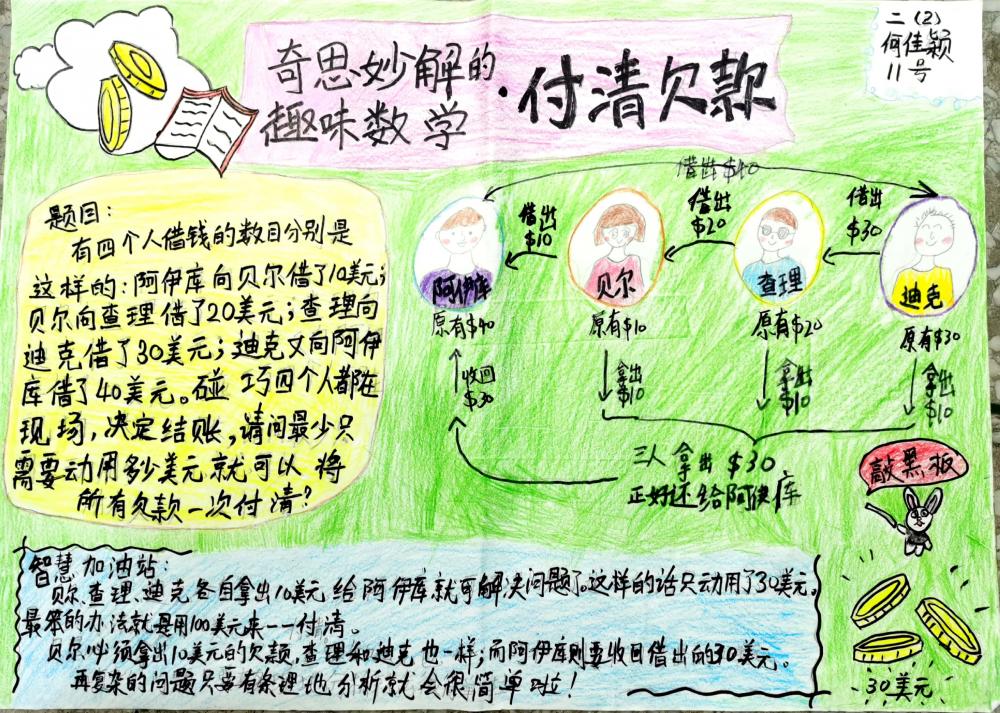 奇思妙解的
趣味数学
·付清欠款
二(2)
何佳颖
11号
题目:
有四个人借钱的数目分别是
这样的:阿伊库向贝尔借了10美元;
贝尔向查理借了20美元;查理向
迪克借了30美元;迪克又向阿伊
库借了40美元。碰巧四个人都在
现场,决定结账,请问最少只
需要动用多少美元就可以将
所有欠款一次付清?
借出$40
借出
$10
借出
$20
借出
$30
阿伊库
贝尔
查理
迪克
原有$40
原有$10
原有$20
原有$30
收回
$30
拿出
$10
拿出
$10
拿出
$10
三人拿出$30
正好还给阿伊库
敲黑板
智慧加油站:
贝尔、查理、迪克各自拿出10美元给阿伊库就可解决问题了。这样的话只动用了30美元。
最笨的办法就是用100美元来一一付清。
贝尔必须拿出10美元的欠款,查理和迪克也一样;而阿伊库则要收回借出的30美元。
再复杂的问题只要有条理地分析就会很简单啦!
30美元